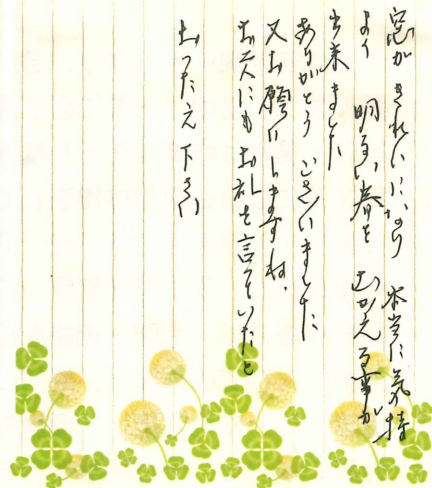 窓が きれいになり 本当に気持
よく 明るい春を むかえる事が
出来ました
ありがとう ございました
又お願いしますね。
お兄にも お礼を言っていたと
おつたえ下さい